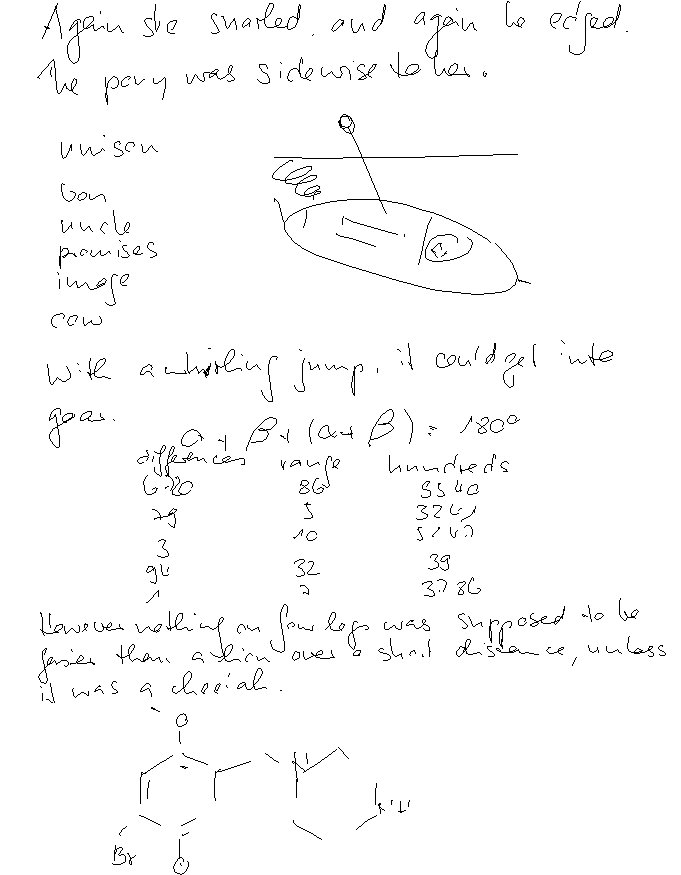 Again she snarled, and again he edged.
The pony was sidewise to her.
unison
ban
uncle
promises
image
cow
With a whirling jump, it could get into
gear.
α + β + (α + β) = 180°
differences range hundreds
6-20 86 5540
29 5 3241
3 10
94 32 39
1 7 3786
However nothing on four legs was supposed to be
faster than a lion over a short distance, unless
it was a cheetah.
O
N
Br O